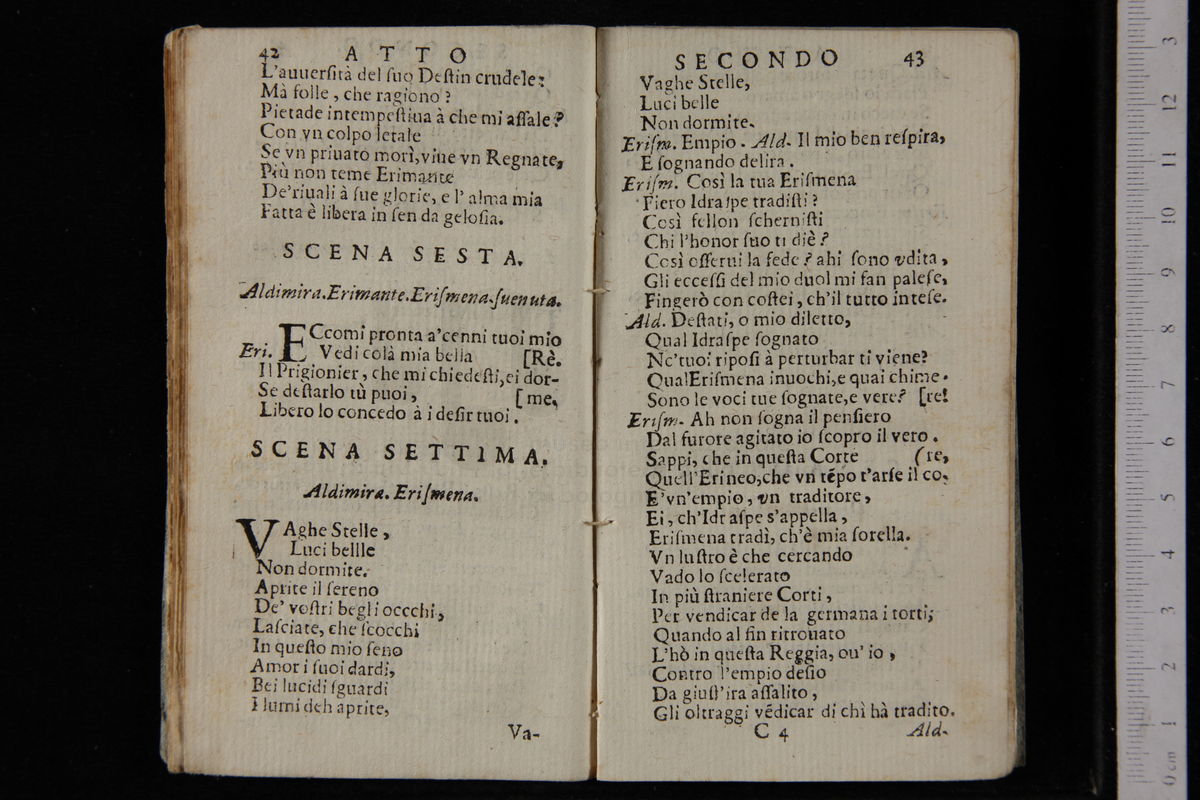 42 ATTO
L'auuerſità del ſuo Deſtin crudele:
Mà folle, che ragiono?
Pietade intempeſtiua à che mi aſſale?
Con vn colpo letale
Se vn priuato morì, viue vn Regnate,
Più non teme Erimante
De'riuali à ſue glorie, e l'alma mia
Fatta è libera in ſen da geloſia.
SCENA SESTA.
Aldimira. Erimante. Eriſmena. ſuenuta.
ECcomi pronta a'cenni tuoi mio
Eri. Vedi colà mia bella [Rè.
Il Prigionier, che mi chiedeſti, ei dor-
Se deſtarlo tù puoi, [me,
Libero lo concedo à i deſir tuoi.
SCENA SETTIMA.
Aldimira. Eriſmena.
VAghe Stelle,
Luci bellle
Non dormite.
Aprite il ſereno
De' voſtri begli occchi,
Laſciate, che ſcocchi
In queſto mio ſeno
Amor i ſuoi dardi,
Bei lucidi ſguardi
I lumi deh aprite,
Va-
SECONDO 43
Vaghe Stelle,
Luci belle
Non dormite.
Eriſm. Empio. Ald. Il mio ben reſpira,
E ſognando delira.
Eriſm. Così la tua Eriſmena
Fiero Idraſpe tradiſti?
Così fellon ſcherniſti
Chi l'honor ſuo ti diè?
Così oſſerui la fede? ahi ſono vdita,
Gli ecceſſi del mio duol mi fan paleſe,
Fingerò con coſtei, ch'il tutto inteſe.
Ald. Deſtati, o mio diletto,
Qual Idraſpe ſognato
Ne'tuoi ripoſi à perturbar ti viene?
Qual Eriſmena inuochi, e quai chime.
Sono le voci tue ſognate, e vere? [re!
Eriſm. Ah non ſogna il penſiero
Dal furore agitato io ſcopro il vero.
Sappi, che in queſta Corte (re,
Quell'Erineo, che vn tẽpo t'arſe il co.
E'vn'empio, vn traditore,
Ei, ch'Idraſpe s'appella,
Eriſmena tradì, ch'è mia ſorella.
Vn luſtro è che cercando
Vado lo ſcelerato
In più ſtraniere Corti,
Per vendicar de la germana i torti;
Quando al fin ritrouato
L'hò in queſta Reggia, ou' io,
Contro l'empio deſio
Da giuſt'ira aſſalito,
Gli oltraggi vẽdicar di chì hà tradito.
C 4 Ald-
0 cm 1 2 3 4 5 6 7 8 9 10 11 12 13